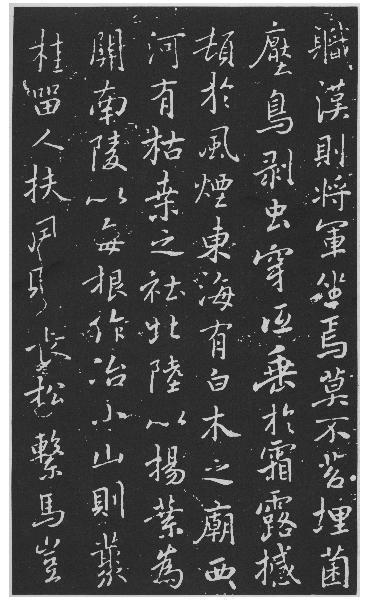 職漢則将軍坐焉莫不苔埋菌
壓鳥剥虫穿低垂於霜露撼
頓於風煙東海有白木之廟西
河有枯桒之社北陸以揚葉為
開南陵以每根作冶小山則叢
桂留人扶風則長松繫馬豈